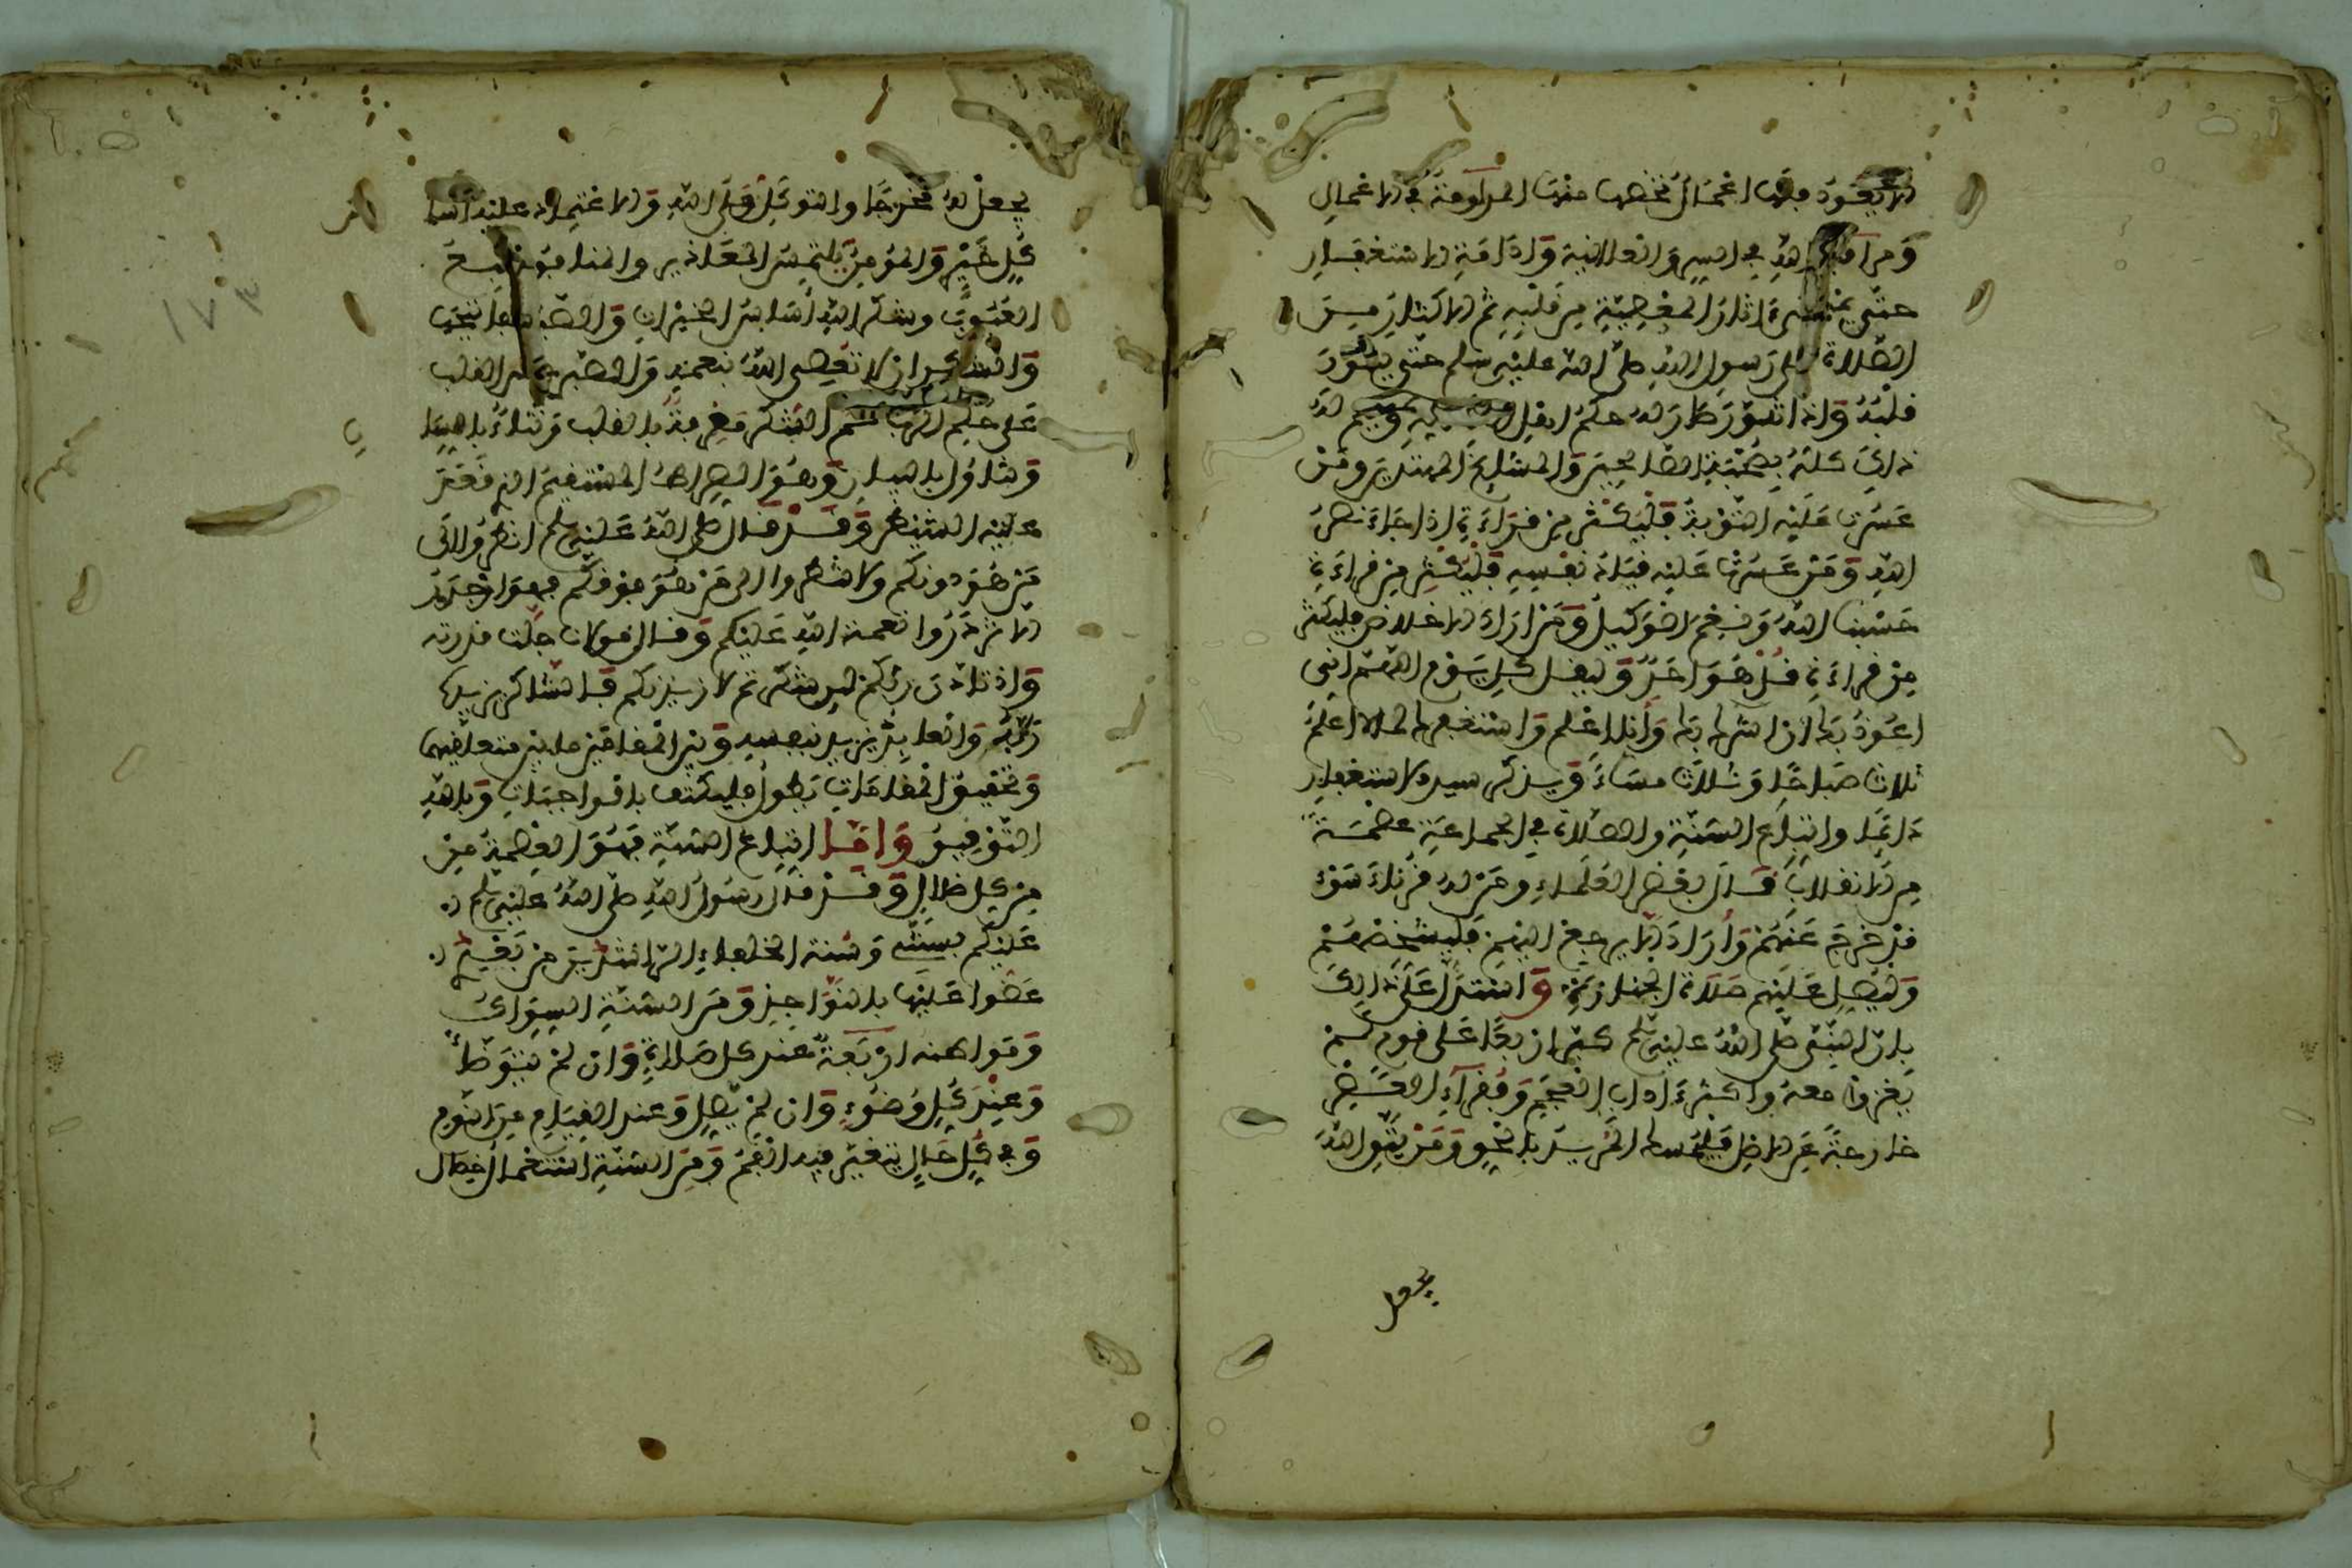 لا يعود فلها اعمال تخصها منها المداومة في الاعمال
ومراقبة الله في السر والعلانية وادامة الاستغفار
حتى تمتحي ءاثار المعصية من قلبه ثم الاكثار من
الصلاة على رسول الله صلى الله عليه وسلم حتى يتنور
قلبه واذا تنور ظهر له حكم افعل
ذلك كله بصحبة الصالحين والمشايخ المهتدين ومن
عسرت عليه التوبة فليكثر من قراءة اذا جاء نصر
الله ومن عسرت عليه قياد نفسه فليكثر من قراءة
حسبنا الله ونعم الوكيل ومن اراد الاخلاص فليكثر
من قراءة قل هو احد وليقل كل يوم اللهم اني
اعوذ بك ان اشرك بك وانا اعلم واستغفرك لما لا اعلم
ثلاث صباحا وثلاث مساء ويذكر سيد الاستغفار
دائما واتباع السنة والصلاة في الجماعة عصمة
من الانفلاب قال بعض العلماء ومن له قرناء سوء
قد خرج عنهم واراد الا يرجع اليهم فليشخصهم
وليصل عليهم صلاة الجنازة واستدل على ذلك
بان النبي صلى الله عليه وسلم كبر اربعا على قوم لم
يغزوا معه واكثر ءاداب العجم وفقراء العصر
خارجة عن الاصل فليتمسك المريد بالحق ومن يتق الله
يجعل
يجعل له مخرجا والتوكل على الله والاعتماد عليه اساس
كل خير والمؤمن يلتمس المعاذير والمنافق يتبع
العيوب وشكر الله اساس الخيرات والصبر
والشكر ان لا تعصى الله بنعمه والصبر القلب
على حكم الرب ثم الشكر معرفة بالقلب وثناء باللسان
وهو الصراط المستقيم الذي قعد
عليه الشيطان وقد قال صلى الله عليه وسلم انظروا الى
من هو دونكم ولا تنظروا الى من هو فوقكم فهو اجدر
الا تزدروا نعمة الله عليكم وقال مولانا جلت قدرته
واذ تاذن ربكم لين شكرتم لازيدنكم فالشاكر يزيده
ربه والعابد يزيد بنفسه وبين المقامين ما بين متعلقيهما
وتحقيق المقامات يطول فليكتف بالواجبات وبالله
التوفيق واما اتباع السنة فهو العصمة من
من كل ضلال وقد قال رسول الله صلى الله عليه وسلم
عليكم بسنتي وسنة الخلفاء الراشدين من بعدي
عضوا عليها بالنواجذ ومن السنة السواك
ومواطنه اربعة عند كل صلاة وان لم يتوضأ
وعند كل وضوء وان لم يصل وعند القيام من النوم
وفي كل حال يتغير فيه الفم ومن السنة استعمال خصال